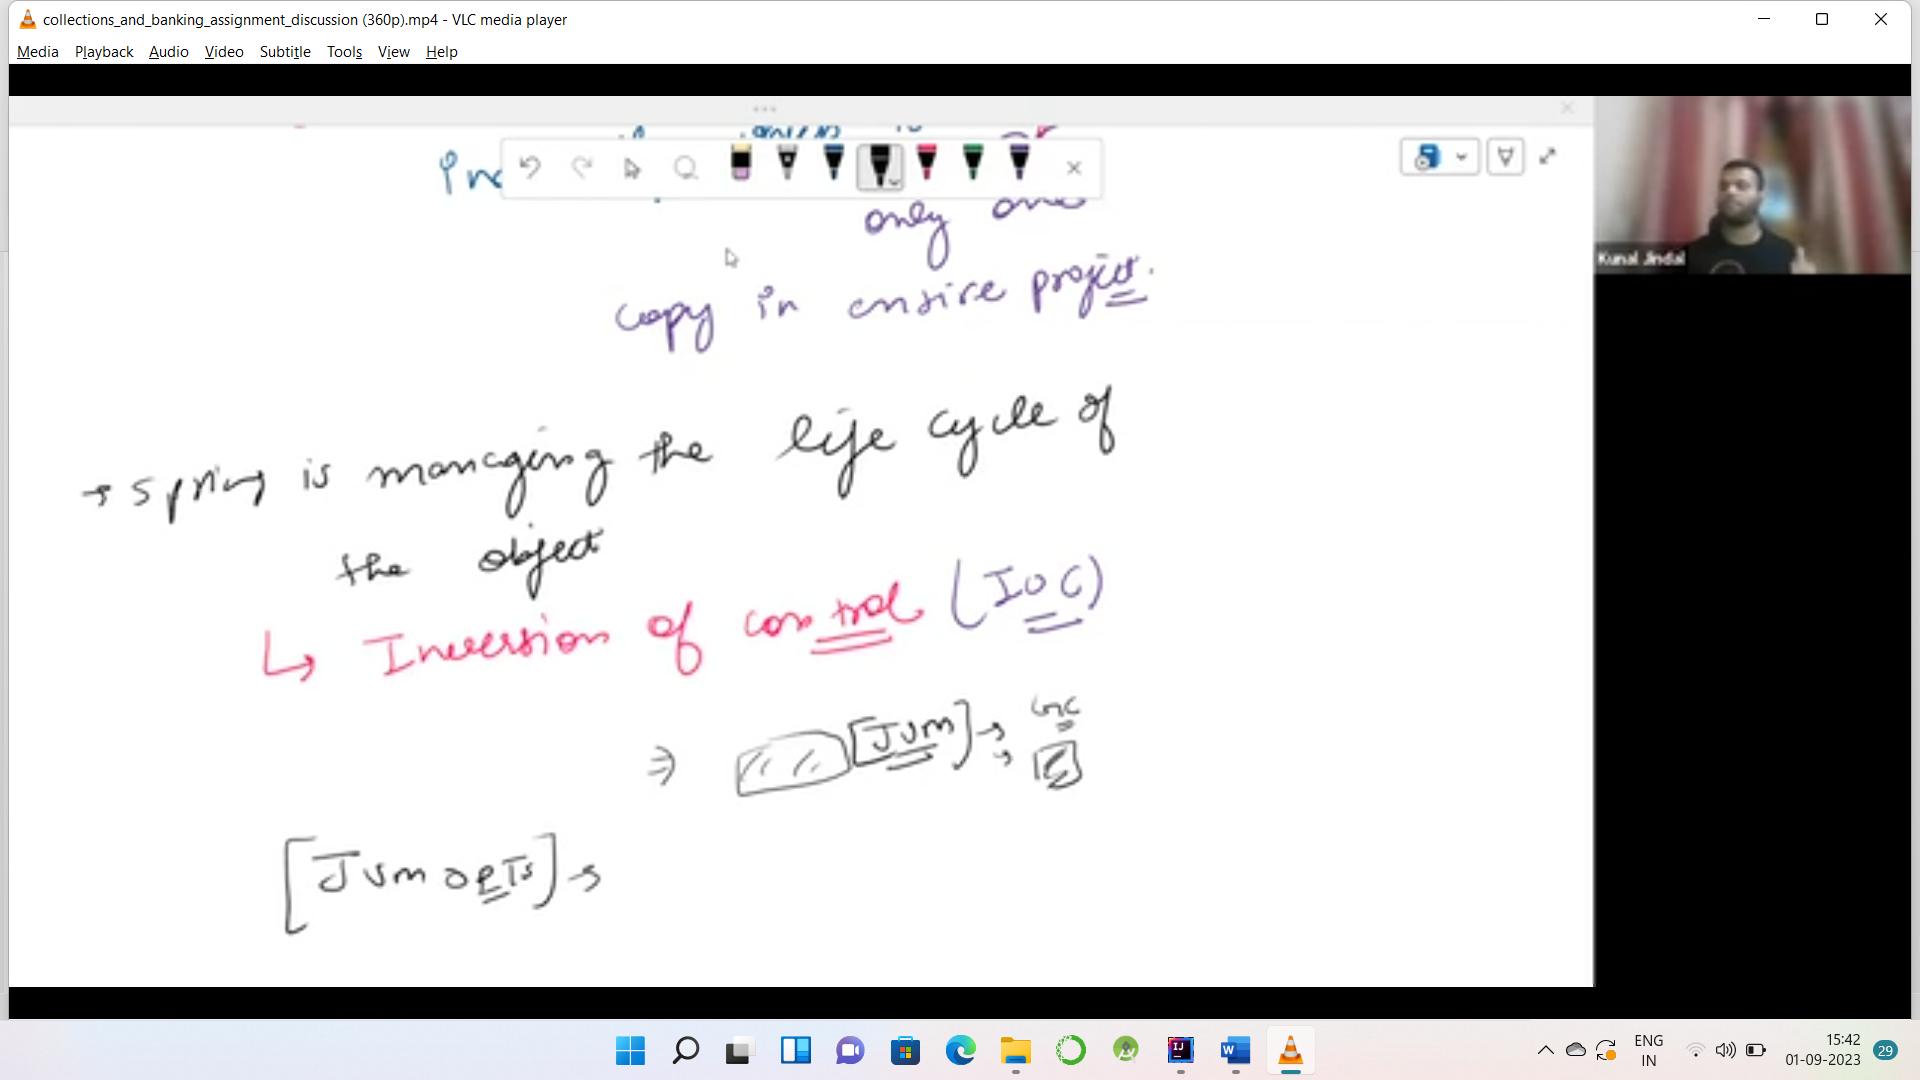 collections_and_banking_assignment_discussion (360p).mp4 - VLC media player
Media Playback Audio Video Subtitle Tools View Help
only one
copy in entire project.
→ spring is managing the life cycle of
the object
↳ Inversion of control (IOC)
⇒ [JVM] → GC
[JVM OPTS] →
Kunal Jindal
ENG
IN
15:42
01-09-2023
29